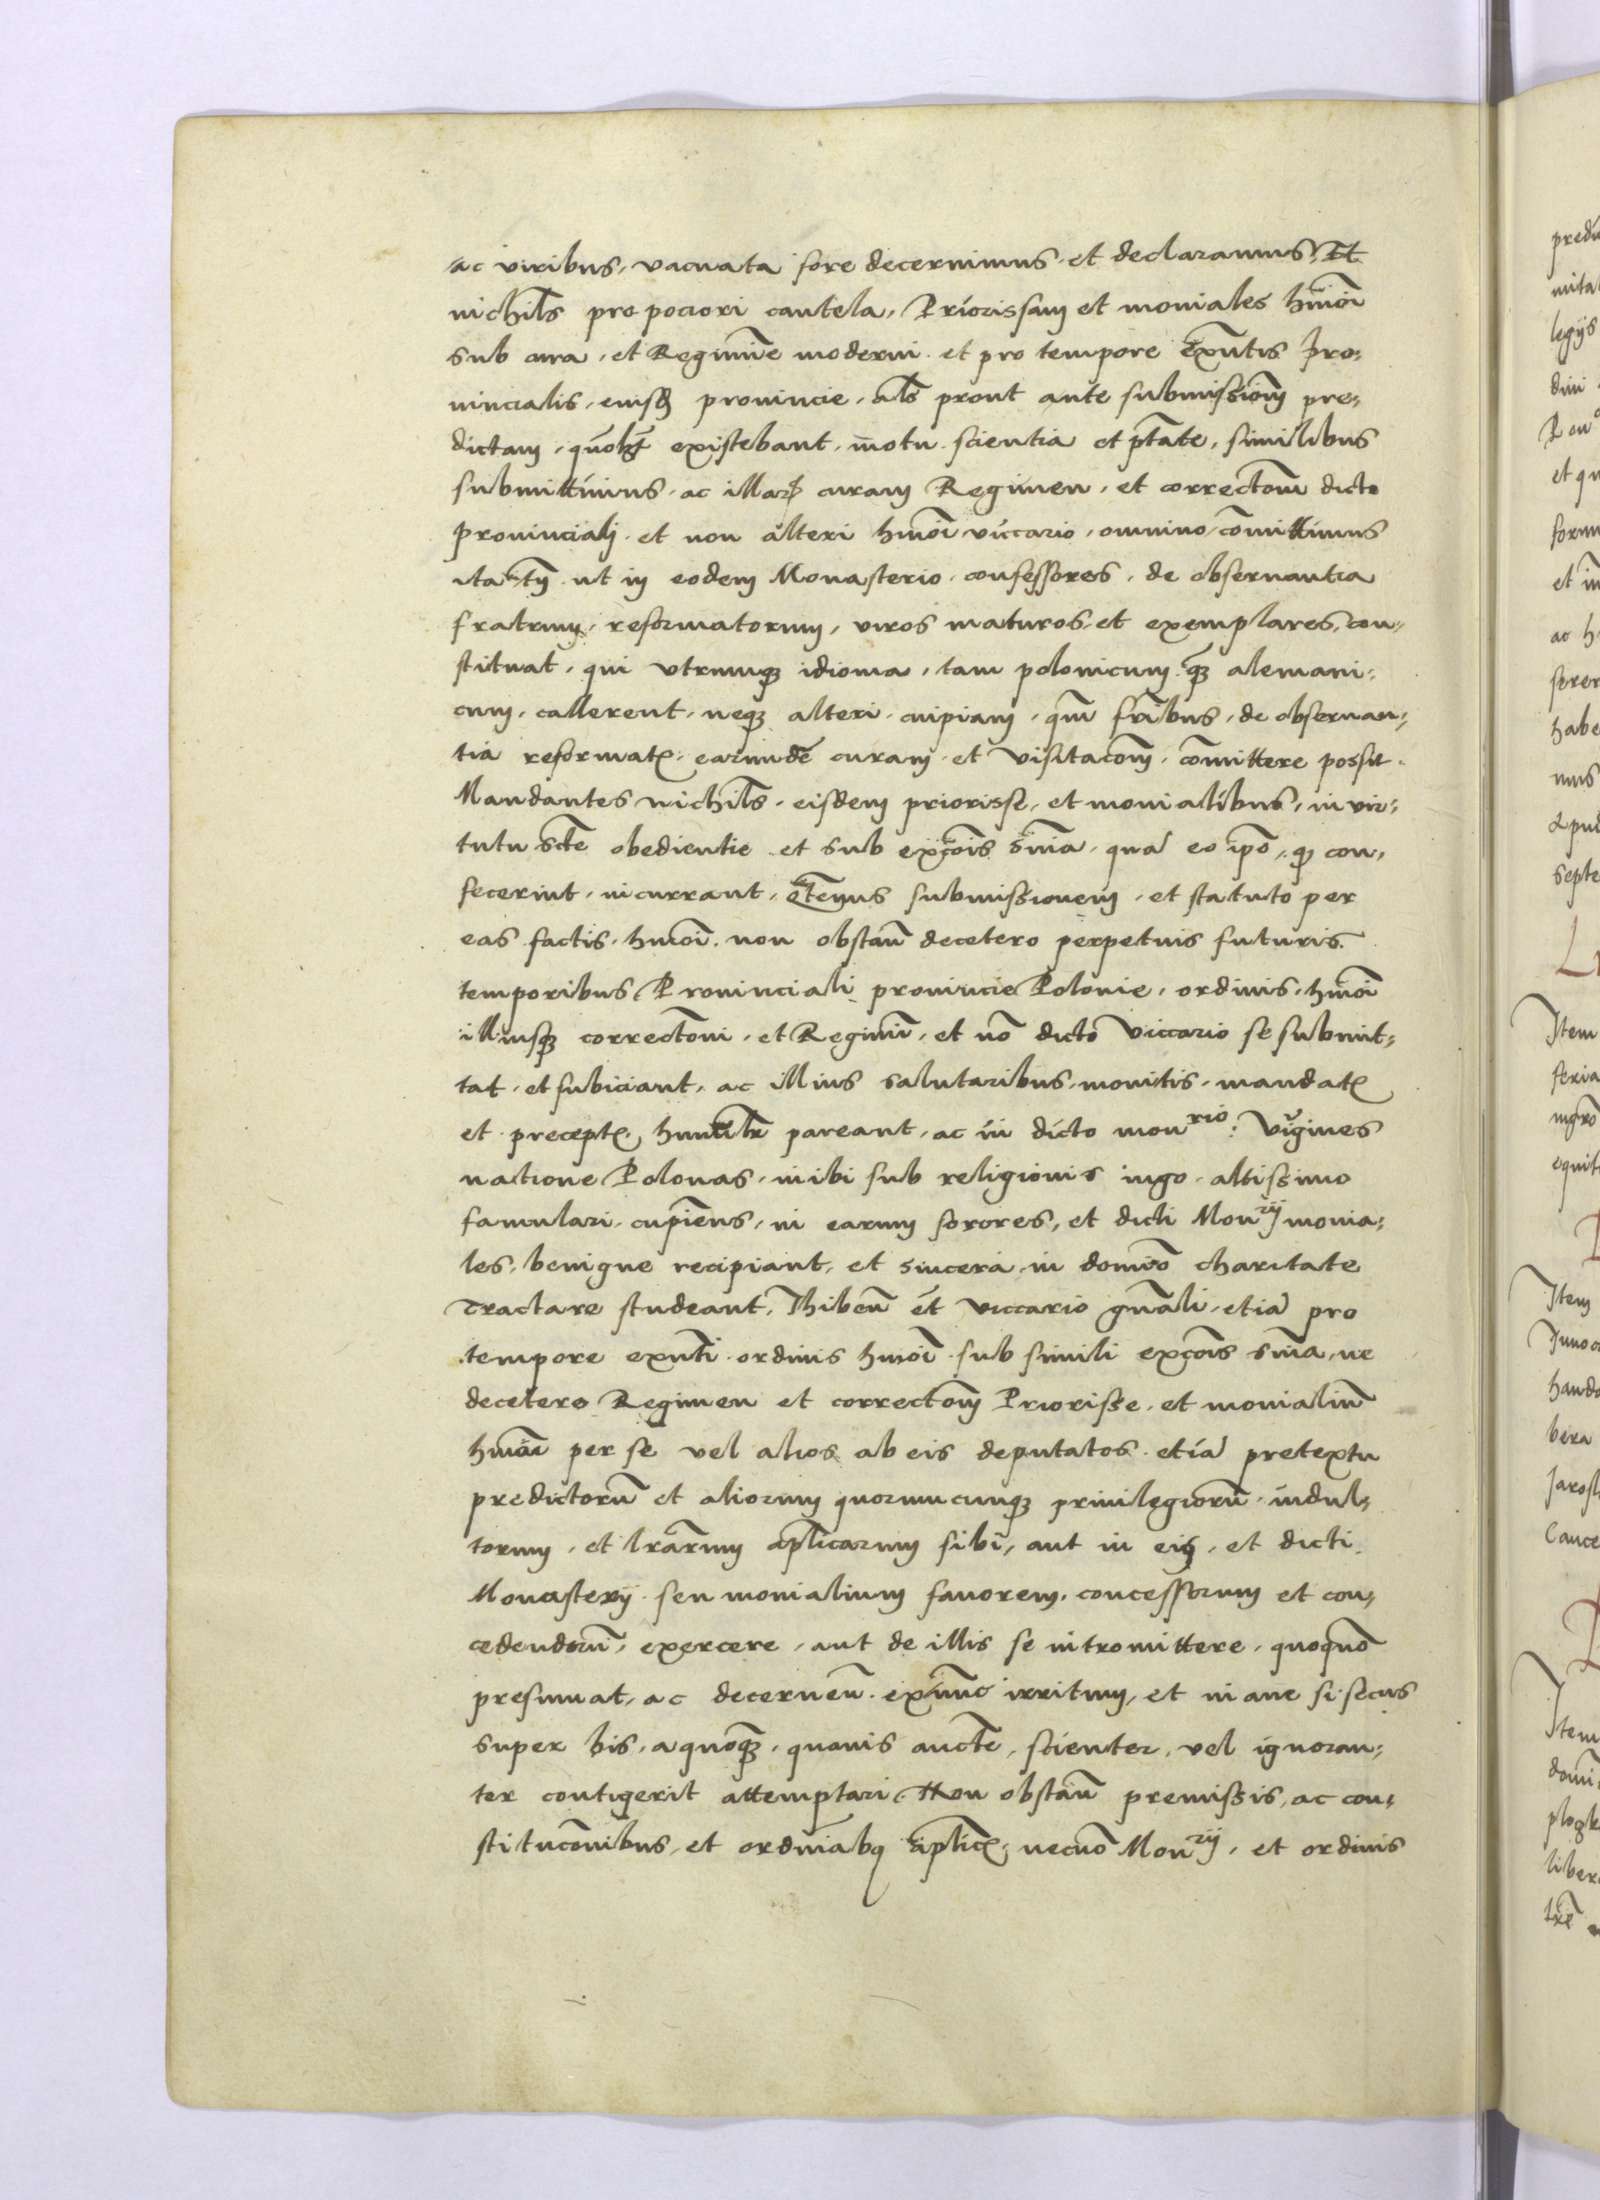 ac viribus, vacuata fore decernimus et declaramus, Et
nichils pro pociori cautela, Priorissam et moniales hmoi
sub cura, et Regimine moderni et pro tempore exñtis Pro-
uincialis, eiusdem prouincie, als prout ante submissionem pre-
dictam, existebant, motu scientia et ptate, similibus
submittimus, ac illarum curam Regimen, et correctoem dicto
prouinciali et non alteri hmoi viccario, omnino comittimus
ita tn ut in eodem Monasterio confessores, de obseruantia
fratrum, reformatorum, viros maturos, et exemplares, con-
stituat, qui vtrumque idioma, tam polonicum quam alemani-
cum, callerent, neque alteri cuipiam, quam fribus, de obseruan-
tia reformatis earumdē curam et visitacoem, comittere possit
Mandantes nichils, eisdem priorisse, et monialibus, in vir-
tutu scte obedientie et sub excois snia, quā eo ipo, con-
fecerint, incurrant, submissionem, et statuto per
eas factis, hmoi, non obstan decetero perpetuis futuris
temporibus Prouinciali prouincie Polonie, ordinis, hmoi
illiusque correctoni, et Regimi, et nō dicto Viccario se submit-
tat, et subiciant, ac illius salutaribus, monitis, mandatis
et preceptis, humilr pareant, ac in dicto monrio: Virgines
natione Polonas, inibi sub religionis iugo, altissimo
famulari, cupiens, in earum sorores, et dicti Monrij monia-
les, benigne recipiant, et sincera, in domino charitate
tractare studeant, Jhiben et viccario gnali, etiā pro
tempore exnti ordinis hmoi sub simili excois snia, ne
decetero Regimen et correctoem Priorisse, et monialium
hmoi per se vel alios ab eis deputatos etiā pretextu
predictorū et aliorum quorumcunque priuilegiorū indul-
torum, et lrarum aplicarum sibi, aut in eis, et dicti
Monasterij seu monialium fauorem, concessorum et con-
cedendorū, exercere, aut de illis se intromittere, quoquō
presumat, ac decernen exnunc irritum, et inane si secus
super his, a quoque, quauis aucte, scienter, vel ignoran-
ter contigerit attemptari, Non obstan premissis, ac con-
stitucoibus, et ordinabq aplicis, necnō Monrij, et ordinis